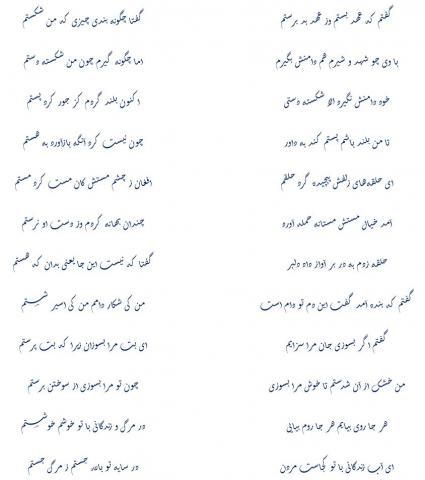 گفتم که عهد بستم وز عهد بد برستم گفتا چگونه بندی چیزی که من شکستم
با وی چو شهد و شیرم هم دامنش بگیرم اما چگونه گیرم چون من شکسته دستم
خود دامنش نگیرد الا شکسته دستی اکنون بلند گردم کز جور کرد پستم
تا من بلند باشم پستم کند به داور چون نیست کرد آنگه بازآورد به هستم
ای حلقه‌های زلفش پیچیده گرد حلقم افغان ز چشم مستش کان مست کرد مستم
آمد خیال مستش مستانه حمله آورد چندان بهانه کردم وز دست او نرستم
حلقه زدم به در بر آواز داد دلبر گفتا که نیست این جا یعنی بدان که هستم
گفتم که بنده آمد گفت این دم تو دام است من کی شکار دامم من کی اسیر شستم
گفتم اگر بسوزی جان مرا سزایم ای بت مرا بسوزان زیرا که بت پرستم
من خشک از آن شدستم تا خوش مرا بسوزی چون تو مرا بسوزی از سوختن برستم
هر جا روی بیایم هر جا روم بیایی در مرگ و زندگانی با تو خوشم خوشستم
ای آب زندگانی با تو کجاست مردن در سایه تو بالله جستم ز مرگ جستم